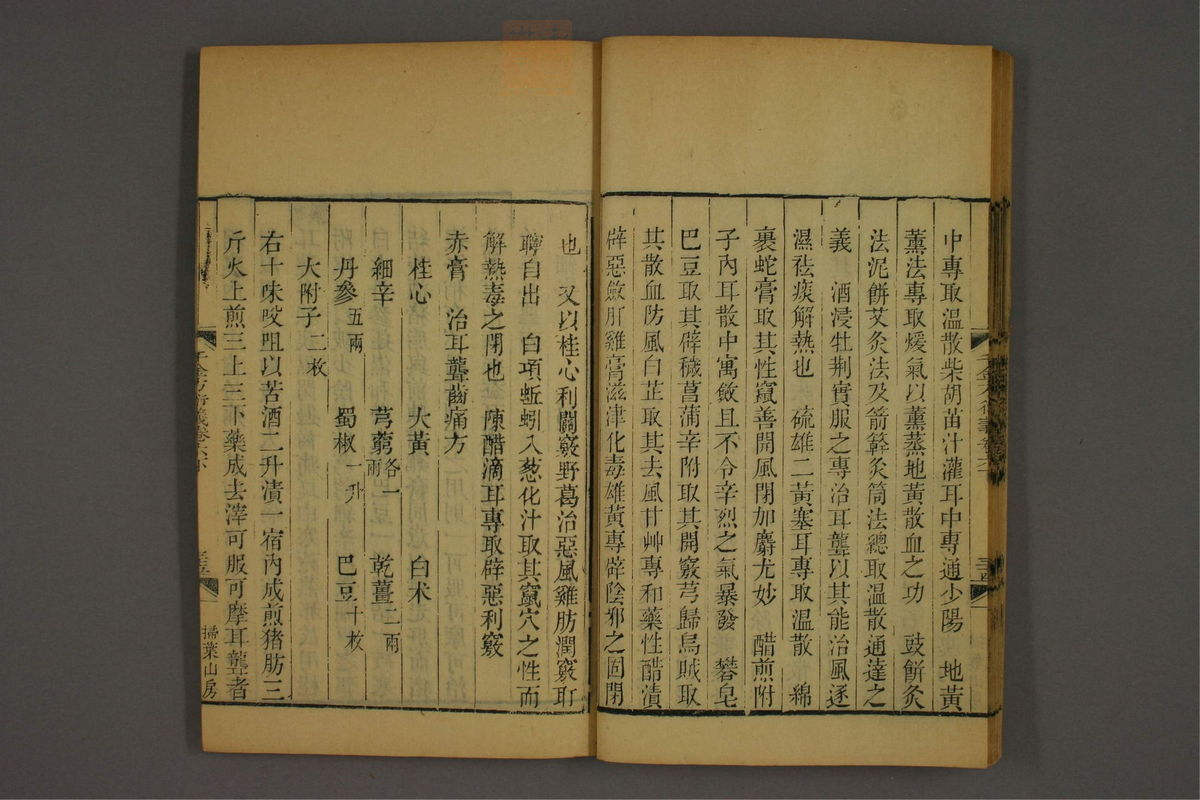 中專取溫散柴胡苗汁灌耳中專通少陽　地黃
薰法專取煖氣以薰蒸地黃散血之功　豉餅灸
法泥餅艾灸法及箭簳灸筒法總取溫散通達之
義　酒浸牡荆實服之專治耳聾以其能治風逐
濕祛痰解熱也　硫雄二黃塞耳專取溫散　綿
裹蛇膏取其性竄善開風閉加麝尤妙　醋煎附
子內耳散中寓斂且不令辛烈之氣暴發　礬皂
巴豆取其辟穢菖蒲辛附取其開竅芎歸烏賊取
其散血防風白芷取其去風甘艸專和藥性醋漬
辟惡斂肝雞膏滋津化毒雄黃專辟陰邪之固閉
也　又以桂心利關竅野葛治惡風雞肪潤竅耵
聹自出　白項蚯蚓入葱化汁取其竄穴之性而
解熱毒之閉也　陳醋滴耳專取辟惡利竅
赤膏　治耳聾齒痛方
桂心　大黃　白术
細辛　芎藭各一兩　乾薑二兩
丹參五兩　蜀椒一升　巴豆十枚
大附子二枚
右十味㕮咀以苦酒二升漬一宿內成煎猪肪三
斤火上煎三上三下藥成去滓可服可摩耳聾者
千金方衍義卷六下
掃葉山房